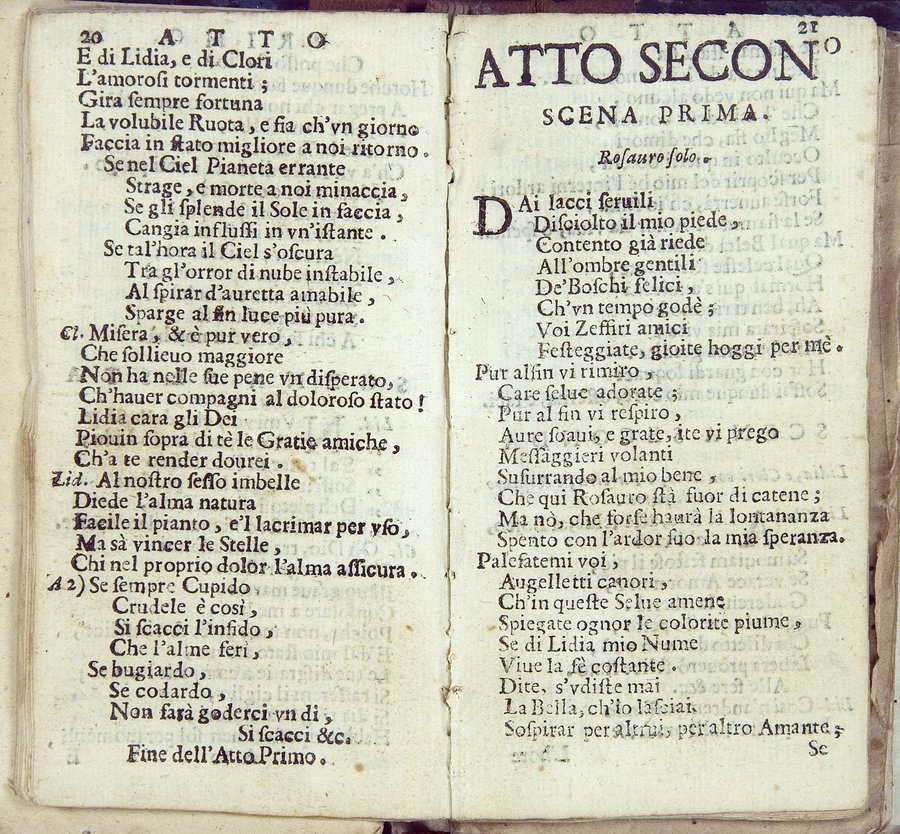 20 ATTO
E di Lidia, e di Clori
L'amorosi tormenti ;
Gira sempre fortuna
La volubile Ruota, e fia ch'vn giorno
Faccia in stato migliore a noi ritorno.
Se nel Ciel Pianeta errante
Strage, e morte a noi minaccia,
Se gli splende il Sole in faccia,
Cangia influssi in vn'istante.
Se tal'hora il Ciel s'oscura
Tra gl'orror di nube instabile,
Al spirar d'auretta amabile,
Sparge al fin luce più pura.
Cl. Misera, & è pur vero,
Che sollieuo maggiore
Non ha nelle sue pene vn disperato,
Ch'hauer compagni al doloroso stato!
Lidia cara gli Dei
Piouin sopra di tè le Gratie amiche,
Ch'a te render dourei.
Lid. Al nostro sesso imbelle
Diede l'alma natura
Facile il pianto, e'l lacrimar per vso,
Ma sà vincer le Stelle,
Chi nel proprio dolor l'alma assicura.
A 2) Se sempre Cupido
Crudele è così,
Si scacci l'infido,
Che l'alme ferì,
Se bugiardo,
Se codardo,
Non farà goderci vn dì,
Si scacci &c.
Fine dell'Atto Primo.
21
ATTO SECON.º
SCENA PRIMA.
Rosauro solo.
DAi lacci seruili
Disciolto il mio piede,
Contento già riede
All'ombre gentili
De'Boschi felici,
Ch'vn tempo godè;
Voi Zeffiri amici
Festeggiate, gioite hoggi per mè.
Pur alfin vi rimiro,
Care selue adorate;
Pur al fin vi respiro,
Aure soaui, e grate, ite vi prego
Messaggieri volanti
Susurrando al mio bene,
Che qui Rosauro stà fuor di catene;
Ma nò, che forse haurà la lontananza
Spento con l'ardor suo la mia speranza.
Palesatemi voi,
Augelletti canori,
Ch'in queste Selue amene
Spiegate ognor le colorite piume,
Se di Lidia mio Nume
Viue la fè costante.
Dite, s'vdiste mai
La Bella, ch'io lasciai
Sospirar per altrui, per altro Amante;
Se